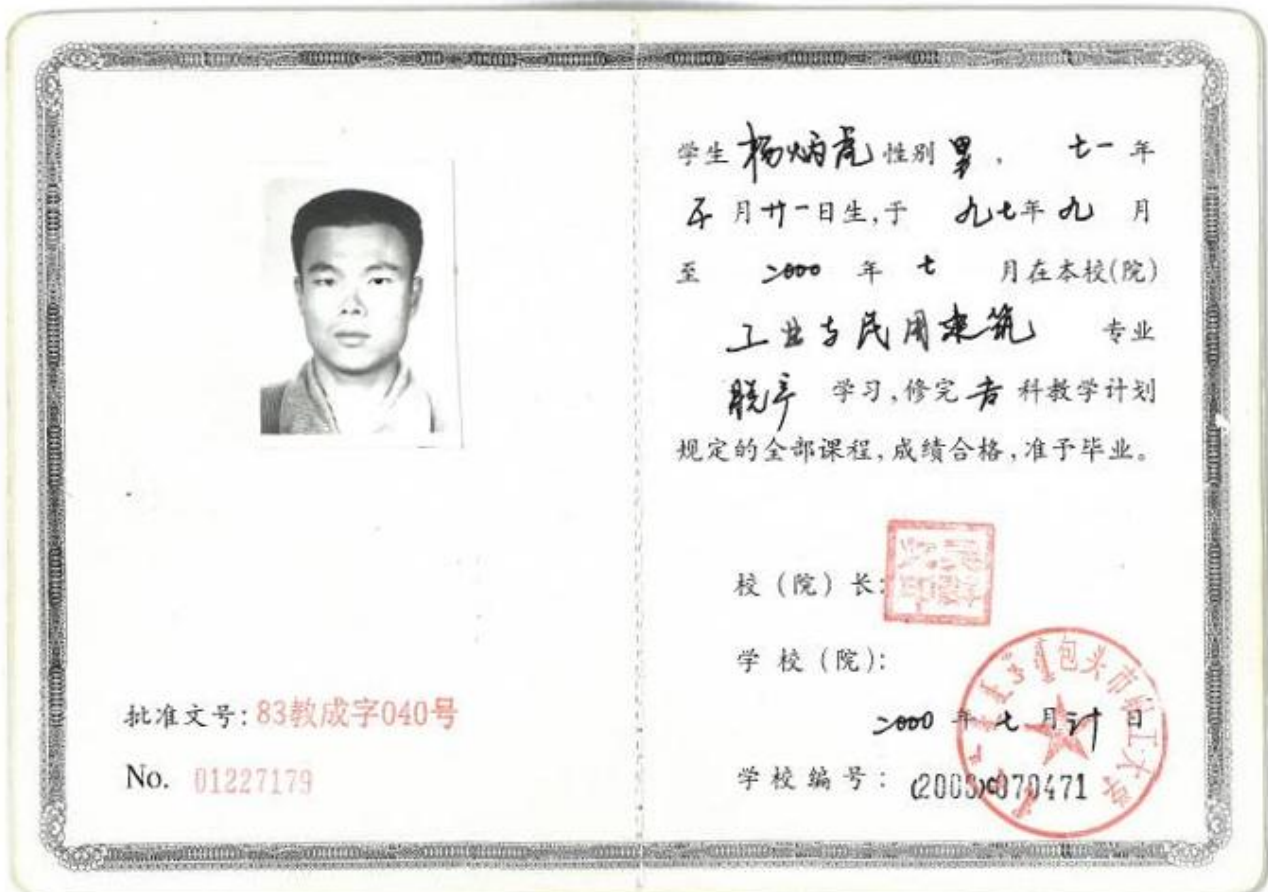 批准文号：83教成字040号
No. 01227179
学生 杨炳虎 性别 男， 七一 年
五 月 廿一 日生，于 九七 年 九 月
至 二000 年 七 月在本校(院)
工业与民用建筑 专业
脱产 学习，修完 专 科教学计划
规定的全部课程，成绩合格，准予毕业。
校（院）长：
学 校（院）：
包头市职工大学
二000 年 七 月 日
学校编号： 070471